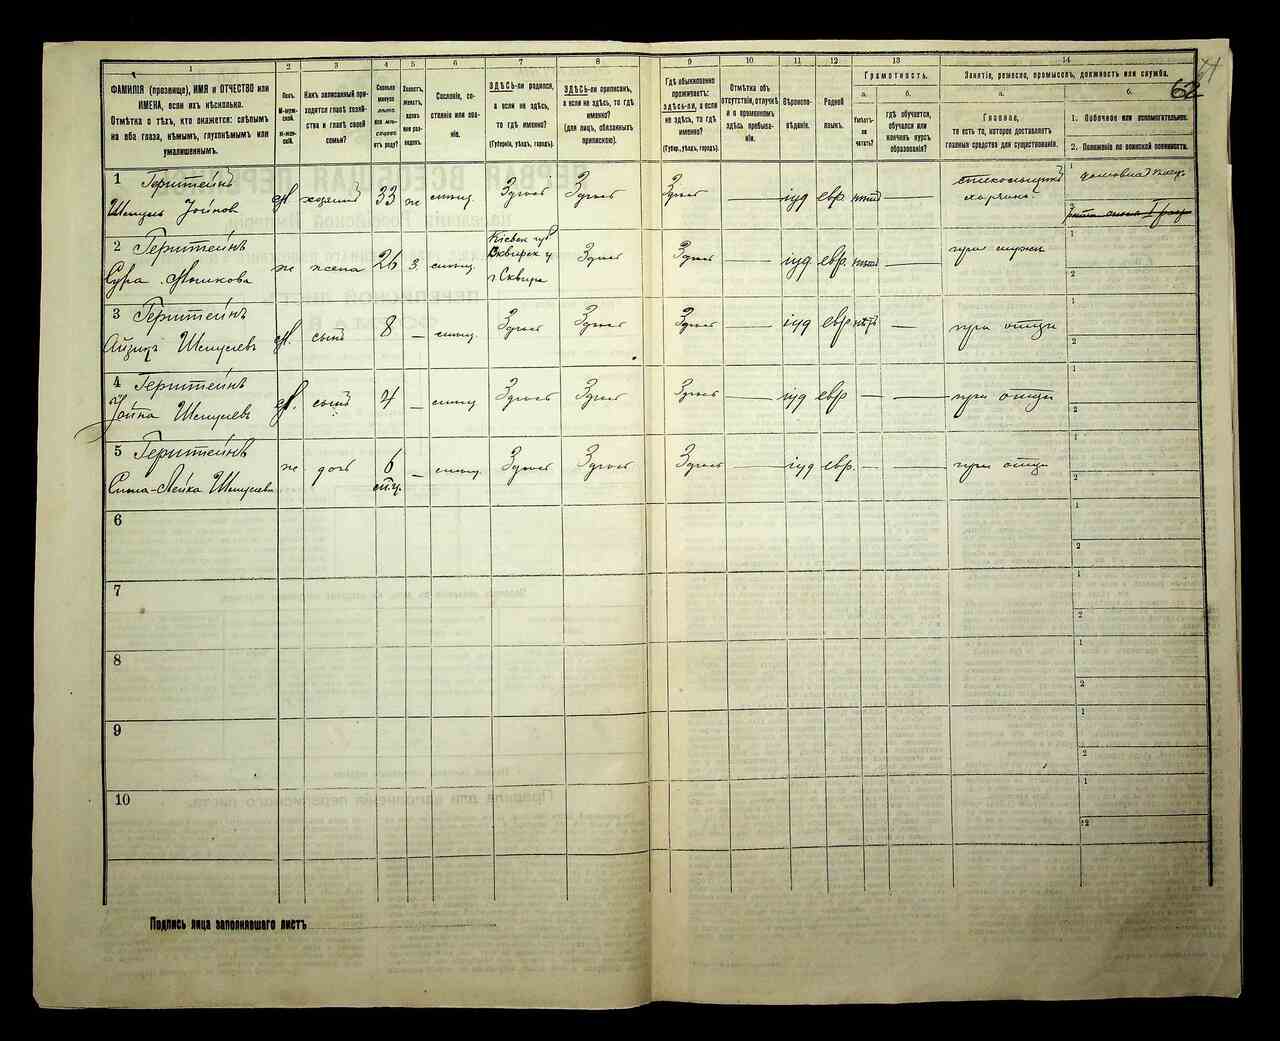 62
1
2
3
4
5
6
7
8
9
10
11
12
13
14
ФАМИЛІЯ (прозвище), ИМЯ и ОТЧЕСТВО или
ИМЕНА, если ихъ нѣсколько.
Отмѣтка о тѣхъ, кто окажется: слѣпымъ
на оба глаза, нѣмымъ, глухонѣмымъ или
умалишеннымъ.
Полъ.
М-мужской.
Ж-женскій.
Какъ записанный при-
ходится главѣ хозяй-
ства и главѣ своей
семьи?
Сколько
минуло
лѣтъ
или мѣ-
сяцевъ
отъ роду?
Холостъ,
женатъ,
вдовъ
или раз-
веденъ.
Сословіе, со-
стояніе или зва-
ніе.
ЗДѢСЬ-ли родился,
а если не здѣсь,
то гдѣ именно?
(Губернія, уѣздъ, городъ).
ЗДѢСЬ-ли приписанъ,
а если не здѣсь, то гдѣ
именно?
(для лицъ, обязанныхъ
припискою).
Гдѣ обыкновенно
проживаетъ:
ЗДѢСЬ-ли, а если
не здѣсь, то гдѣ
именно?
(Губер., уѣздъ, городъ).
Отмѣтка объ
отсутствіи, отлучкѣ
и о временномъ
здѣсь пребыва-
ніи.
Вѣроиспо-
вѣданіе.
Родной
языкъ.
Грамотность.
а.
Умѣетъ-
ли
читать?
б.
гдѣ обучается,
обучался или
кончилъ курсъ
образованія?
Занятіе, ремесло, промыселъ, должность или служба.
а.
Главное,
то есть то, которое доставляетъ
главныя средства для существованія.
б.
1. Побочное или вспомогательное.
2. Положеніе по воинской повинности.
1 Герштейнъ
Шмуль Іойнов
м хозяинъ 33 ж Здѣсь Здѣсь Здѣсь — іуд евр —
1
2
2 Герштейнъ
Сура Мошкова
ж жена 26 з Кіевск губ
Сквирск у
г Сквира
Здѣсь Здѣсь — іуд евр. — при мужѣ
1
2
3 Герштейнъ
Айзикъ Шмулевъ
м. сынъ 8 — Здѣсь Здѣсь Здѣсь — іуд евр — при отцѣ
1
2
4 Герштейнъ
Іойна Шмулевъ
м. сынъ 4 — Здѣсь Здѣсь Здѣсь — іуд евр — — при отцѣ
1
2
5 Герштейнъ
ж дочь 6 — Здѣсь Здѣсь Здѣсь — іуд евр. — — при отцѣ
1
2
6
1
2
7
1
2
8
1
2
9
1
2
10
1
2
Подпись лица заполнявшаго листъ